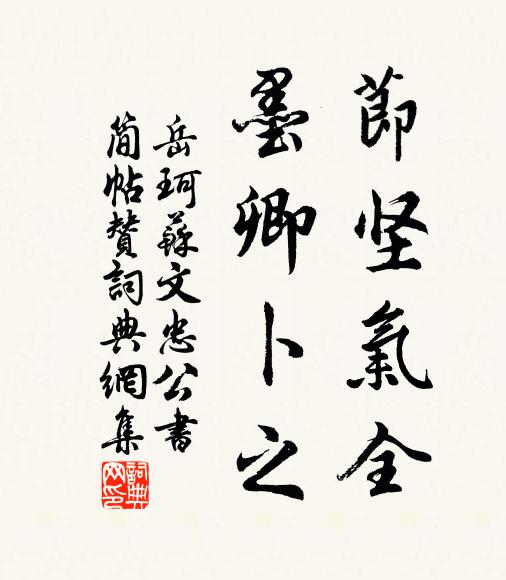 節坚氣全
墨卿卜之
岳珂蘇文忠公書
簡帖贊詞典網集
詞典网印